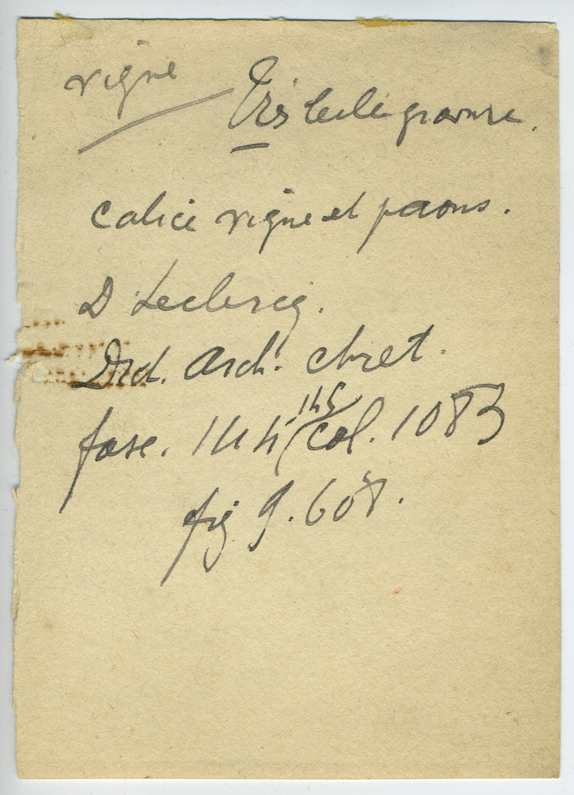 vigne
Très belle gravure.
calice vigne et paons.
D Leclercq.
Dict. Arch. chret.
fasc. 144 (145 col. 1083
fig 9.608.